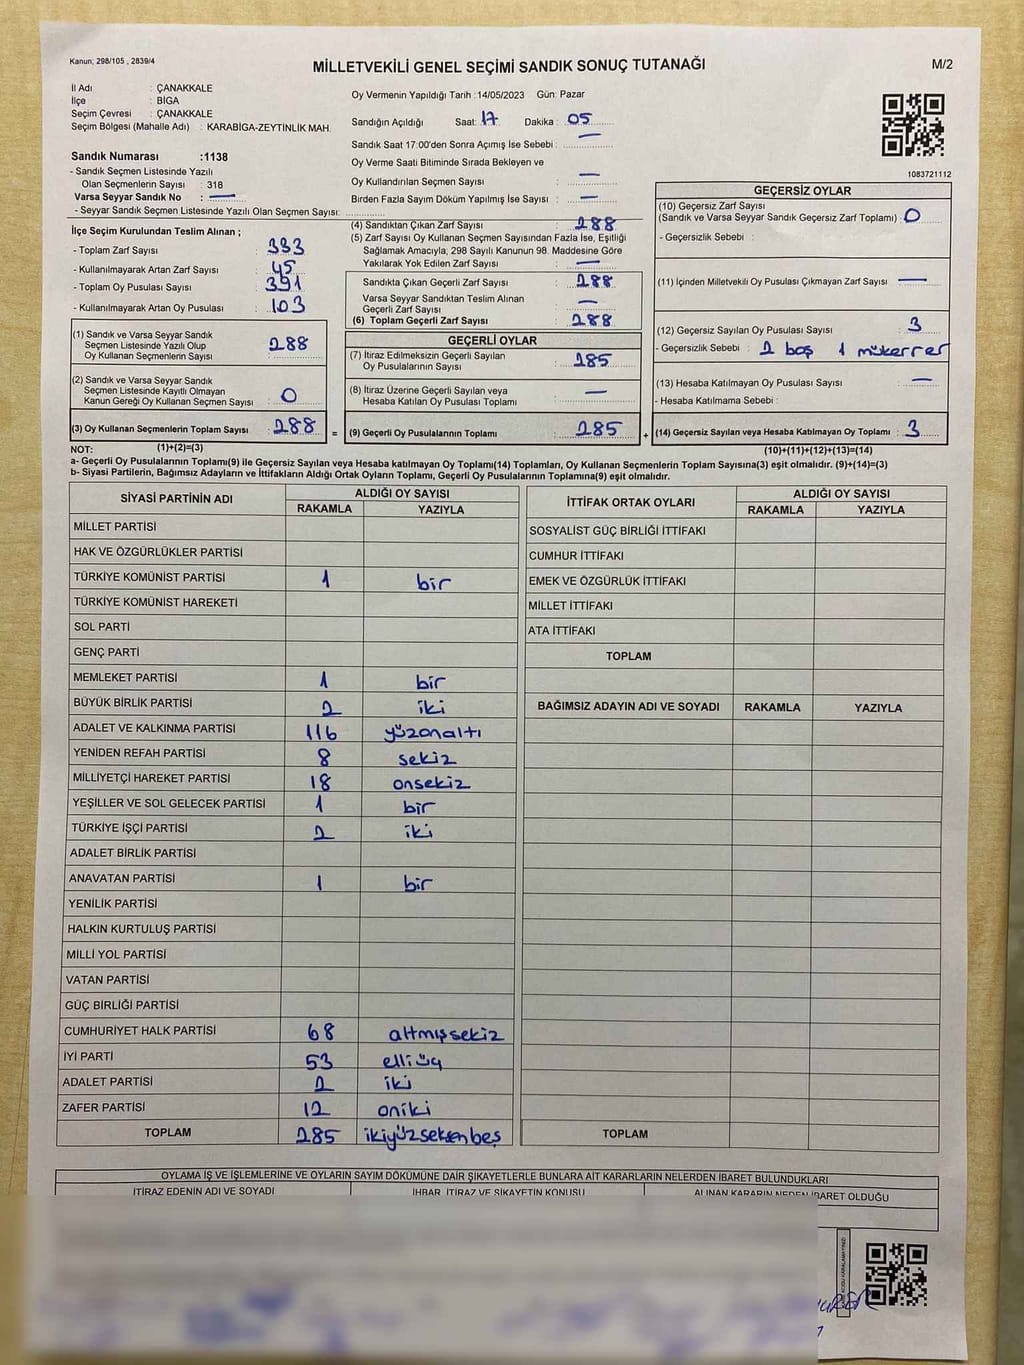 Kanun; 298/105 , 2839/4
MİLLETVEKİLİ GENEL SEÇİMİ SANDIK SONUÇ TUTANAĞI
M/2
İl Adı : ÇANAKKALE
İlçe : BİGA
Seçim Çevresi : ÇANAKKALE
Seçim Bölgesi (Mahalle Adı) : KARABİGA-ZEYTİNLİK MAH.
Sandık Numarası :1138
- Sandık Seçmen Listesinde Yazılı
Olan Seçmenlerin Sayısı : 318
Varsa Seyyar Sandık No : —
- Seyyar Sandık Seçmen Listesinde Yazılı Olan Seçmen Sayısı:
Oy Vermenin Yapıldığı Tarih :14/05/2023 Gün: Pazar
Sandığın Açıldığı Saat: 17 Dakika : 05
Sandık Saat 17:00'den Sonra Açımış İse Sebebi : —
Oy Verme Saati Bitiminde Sırada Bekleyen ve
Oy Kullandırılan Seçmen Sayısı : —
Birden Fazla Sayım Döküm Yapılmış İse Sayısı : —
1083721112
İlçe Seçim Kurulundan Teslim Alınan ;
- Toplam Zarf Sayısı : 333
- Kullanılmayarak Artan Zarf Sayısı : 45
- Toplam Oy Pusulası Sayısı : 391
- Kullanılmayarak Artan Oy Pusulası : 103
(1) Sandık ve Varsa Seyyar Sandık
Seçmen Listesinde Yazılı Olup
Oy Kullanan Seçmenlerin Sayısı : 288
(2) Sandık ve Varsa Seyyar Sandık
Seçmen Listesinde Kayıtlı Olmayan
Kanun Gereği Oy Kullanan Seçmen Sayısı : 0
(3) Oy Kullanan Seçmenlerin Toplam Sayısı : 288
(1)+(2)=(3)
(4) Sandıktan Çıkan Zarf Sayısı : 288
(5) Zarf Sayısı Oy Kullanan Seçmen Sayısından Fazla İse, Eşitliği
Sağlamak Amacıyla, 298 Sayılı Kanunun 98. Maddesine Göre
Yakılarak Yok Edilen Zarf Sayısı : —
Sandıkta Çıkan Geçerli Zarf Sayısı : 288
Varsa Seyyar Sandıktan Teslim Alınan
Geçerli Zarf Sayısı : —
(6) Toplam Geçerli Zarf Sayısı : 288
GEÇERLİ OYLAR
(7) İtiraz Edilmeksizin Geçerli Sayılan
Oy Pusulalarının Sayısı : 285
(8) İtiraz Üzerine Geçerli Sayılan veya
Hesaba Katılan Oy Pusulası Toplamı : —
= (9) Geçerli Oy Pusulalarının Toplamı : 285
GEÇERSİZ OYLAR
(10) Geçersiz Zarf Sayısı
(Sandık ve Varsa Seyyar Sandık Geçersiz Zarf Toplamı) : 0
- Geçersizlik Sebebi :
(11) İçinden Milletvekili Oy Pusulası Çıkmayan Zarf Sayısı : —
(12) Geçersiz Sayılan Oy Pusulası Sayısı : 3
- Geçersizlik Sebebi : 2 boş 1 mükerrer
(13) Hesaba Katılmayan Oy Pusulası Sayısı : —
- Hesaba Katılmama Sebebi :
+ (14) Geçersiz Sayılan veya Hesaba Katılmayan Oy Toplamı : 3
(10)+(11)+(12)+(13)=(14)
NOT:
a- Geçerli Oy Pusulalarının Toplamı(9) ile Geçersiz Sayılan veya Hesaba katılmayan Oy Toplamı(14) Toplamları, Oy Kullanan Seçmenlerin Toplam Sayısına(3) eşit olmalıdır. (9)+(14)=(3)
b- Siyasi Partilerin, Bağımsız Adayların ve İttifakların Aldığı Ortak Oyların Toplamı, Geçerli Oy Pusulalarının Toplamına(9) eşit olmalıdır.
SİYASİ PARTİNİN ADI ALDIĞI OY SAYISI
RAKAMLA YAZIYLA
MİLLET PARTİSİ
HAK VE ÖZGÜRLÜKLER PARTİSİ
TÜRKİYE KOMÜNİST PARTİSİ 1 bir
TÜRKİYE KOMÜNİST HAREKETİ
SOL PARTİ
GENÇ PARTİ
MEMLEKET PARTİSİ 1 bir
BÜYÜK BİRLİK PARTİSİ 2 iki
ADALET VE KALKINMA PARTİSİ 116 yüzonaltı
YENİDEN REFAH PARTİSİ 8 sekiz
MİLLİYETÇİ HAREKET PARTİSİ 18 onsekiz
YEŞİLLER VE SOL GELECEK PARTİSİ 1 bir
TÜRKİYE İŞÇİ PARTİSİ 2 iki
ADALET BİRLİK PARTİSİ
ANAVATAN PARTİSİ 1 bir
YENİLİK PARTİSİ
HALKIN KURTULUŞ PARTİSİ
MİLLİ YOL PARTİSİ
VATAN PARTİSİ
GÜÇ BİRLİĞİ PARTİSİ
CUMHURİYET HALK PARTİSİ 68 altmışsekiz
İYİ PARTİ 53 elliüç
ADALET PARTİSİ 2 iki
ZAFER PARTİSİ 12 oniki
TOPLAM 285 ikiyüzseksenbeş
İTTİFAK ORTAK OYLARI ALDIĞI OY SAYISI
RAKAMLA YAZIYLA
SOSYALİST GÜÇ BİRLİĞİ İTTİFAKI
CUMHUR İTTİFAKI
EMEK VE ÖZGÜRLÜK İTTİFAKI
MİLLET İTTİFAKI
ATA İTTİFAKI
TOPLAM
BAĞIMSIZ ADAYIN ADI VE SOYADI RAKAMLA YAZIYLA
TOPLAM
OYLAMA İŞ VE İŞLEMLERİNE VE OYLARIN SAYIM DÖKÜMÜNE DAİR ŞİKAYETLERLE BUNLARA AİT KARARLARIN NELERDEN İBARET BULUNDUKLARI
İTİRAZ EDENİN ADI VE SOYADI İHBAR, İTİRAZ VE ŞİKAYETİN KONUSU ALINAN KARARIN NEDEN İBARET OLDUĞU